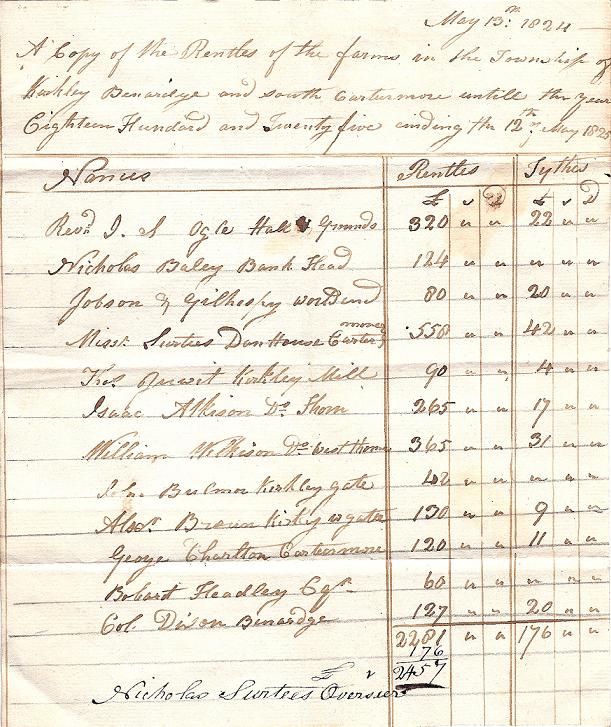 May 13th 1824
A Copy of the Rentles of the farms in the Township of
Kirkley Benardge and south Cartermore untill the year
Eighteen Hundard and Twenty five ending the 12th May 1825
Names Rentles Tythes
£ s D £ s D
Revd J. S Ogle Hall & Grunds 320 " " 22 " "
Nicholas Baley Bank Head 124 " " " " "
Jobson & Gilhespy woodend 80 " " 20 " "
Missr Surtees Dan House Carter moore 558 " " 42 " "
Thos Kirkley Mill 90 " " 4 " "
Isaac Atkison Do Thorn 265 " " 17 " "
William Wilkison Do west thorn 365 " " 31 " "
John Bulmor Kirkley gate 42 " " " " "
Alexr Brown Kirley w gates 130 " " 9 " "
George Charlton Cartermore 120 " " 11 " "
Robart Headley Esqr 60 " " " " "
Col Dixon Benardge 127 " " 20 " "
2281 " " 176 " "
176
2457
Nicholas Surtees Overseer